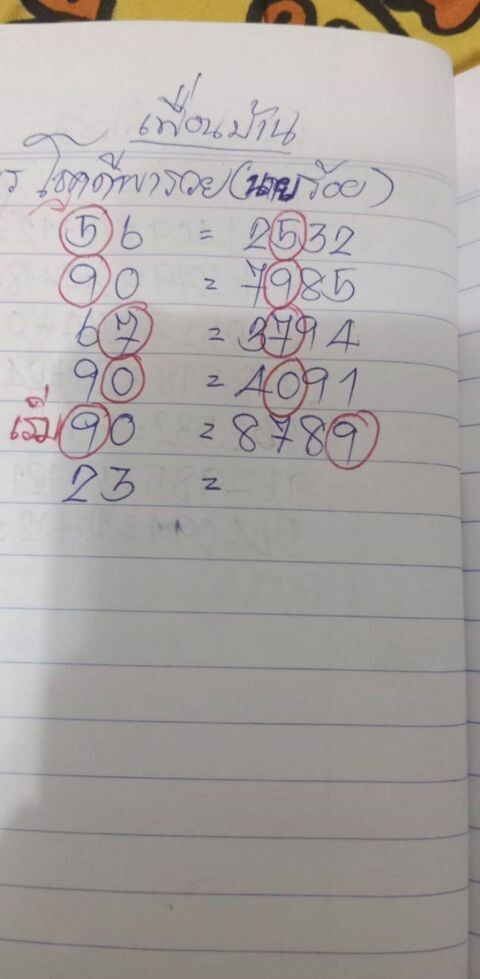 เพื่อนบ้าน
ร โชคดีพารวย(นายร้อย)
56 = 2532
90 = 7985
67 = 3794
90 = 4091
เริ่ม 90 = 8789
23 =